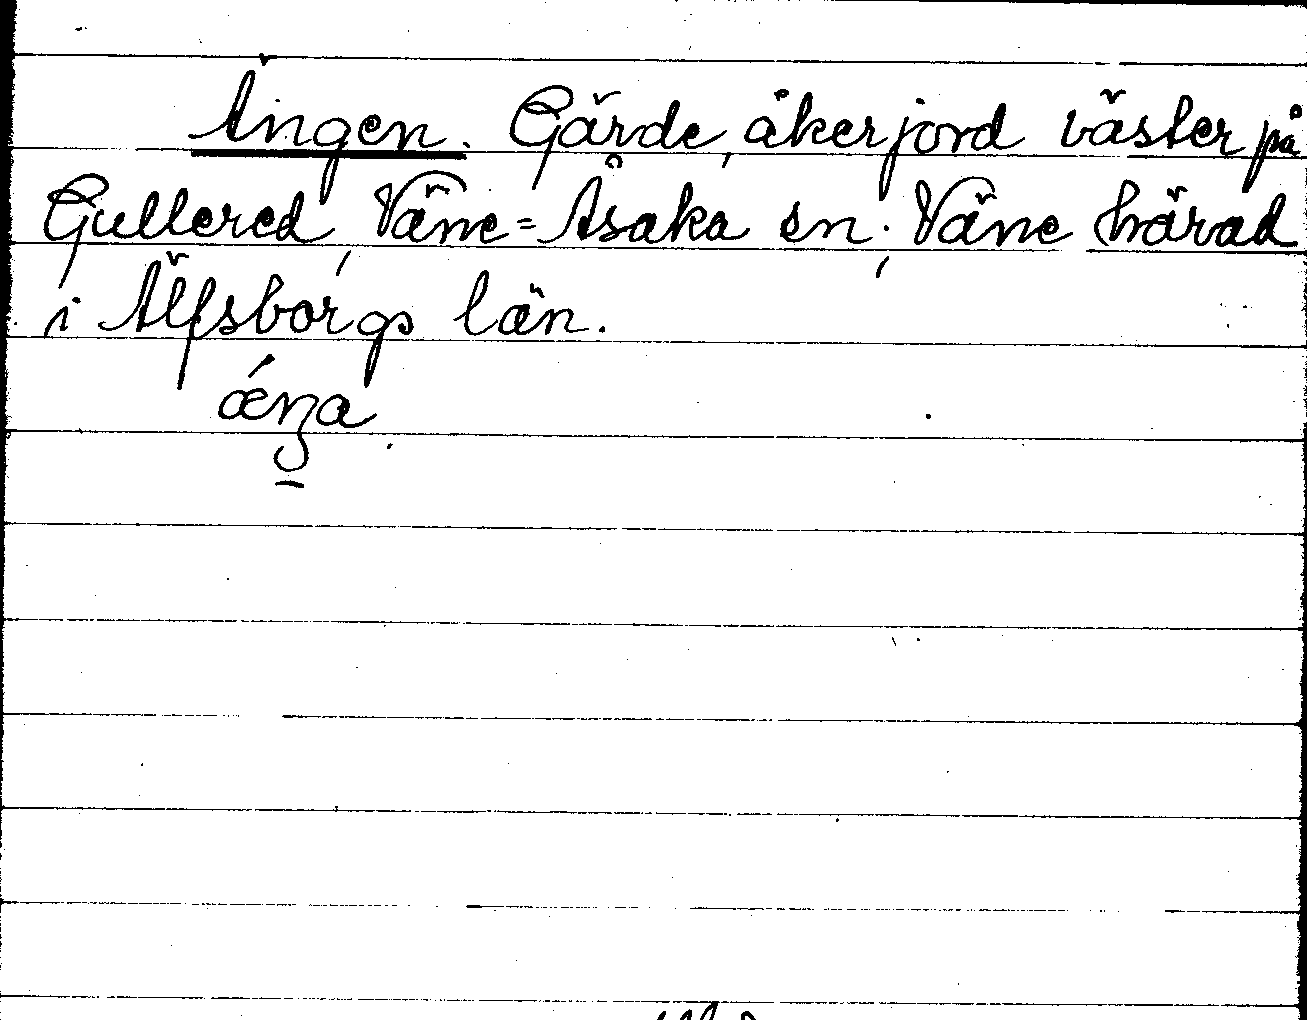 Ängen. Gärde, åkerjord väster på
Gullered, Väne=Åsaka sn; Väne härad
i Älfsborgs län.